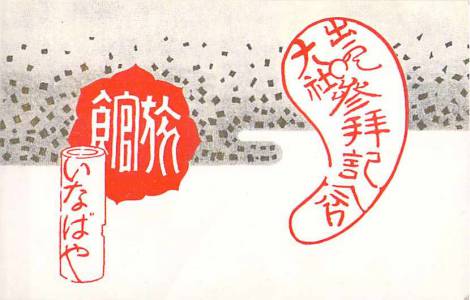 出雲
大社
參拝記念
旅館
いなばや